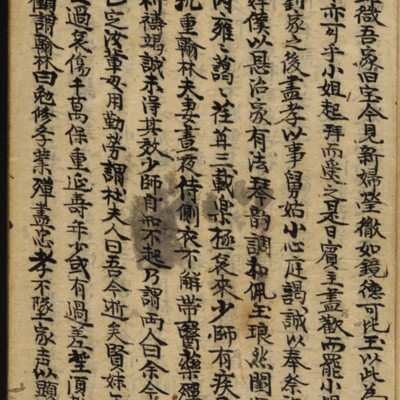 薇吾家旧宝今見新婦瑩徹如鏡德可比玉以此為
亦可乎小姐起拜而受之是日賓主盡歡而罷小
到家之後盡孝以事舅姑小心庭謁誠以奉祭
婢僕以恩治家有法琴韵調和佩玉琅然閨
内雍〻藹〻荏苒三載樂極哀來少師有疾
沉重翰林夫妻晝夜侍側衣不解帶醫藥殫
禱竭誠未得其效少師自知不起乃謂兩人曰余今
已定汝輩毋用勤勞謂杜夫人曰吾今逝矣賢妹
過哀傷千萬保重延壽年少或有過差望須
顧謂翰林曰勉修學業殫盡忠孝不墜家声以顕